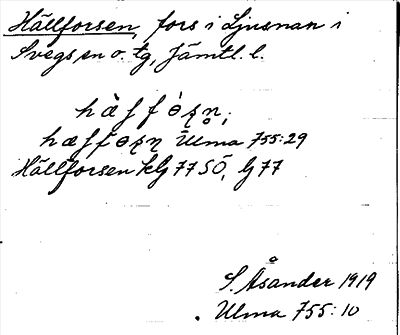 Hällforsen, fors i Ljusnan i
Svegs sn o. tg, Jämtl. l.
hæ̀ʃfɵ̀ʂn̥;
hæʃfɵʂn Ulma 755:29
Hällforsen klg 77 SÖ, lg 77
S. Åsander 1919
Ulma 755:10